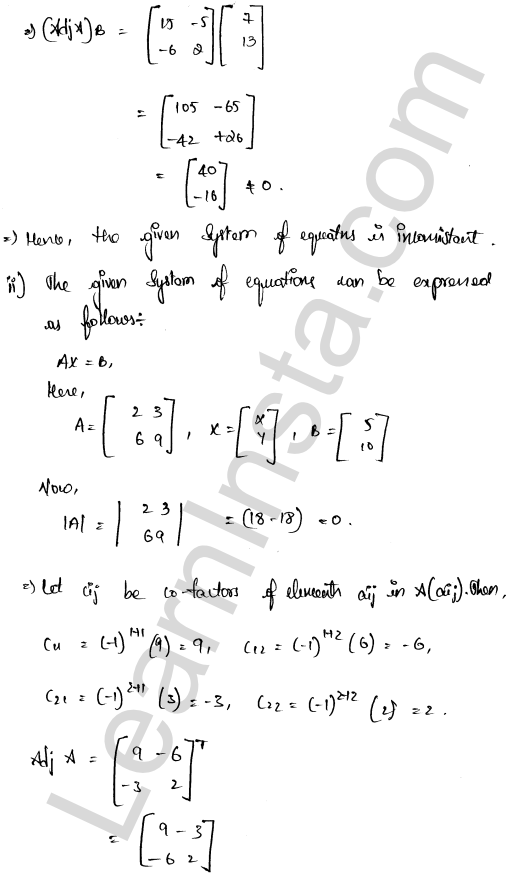 ⇒) (Adj A) B = [15 -5 -6 2] [7 13]
= [105 -65 -42 +26]
= [40 -16] ≠ 0.
⇒) Hence, the given System of equatns is inconsistent.
ii) The given System of equations can be expressed
as follows:-
AX = B,
Here,
A = [2 3 6 9], X = [x y], B = [5 10]
Now,
|A| = |2 3 6 9| = (18 - 18) = 0.
⇒) Let cij be co-factors of elements aij in A(aij). Then,
C11 = (-1)^1+1 (9) = 9, C12 = (-1)^1+2 (6) = -6,
C21 = (-1)^2+1 (3) = -3, C22 = (-1)^2+2 (2) = 2.
Adj A = [9 -6 -3 2]^T
= [9 -3 -6 2]
LearnInsta.com